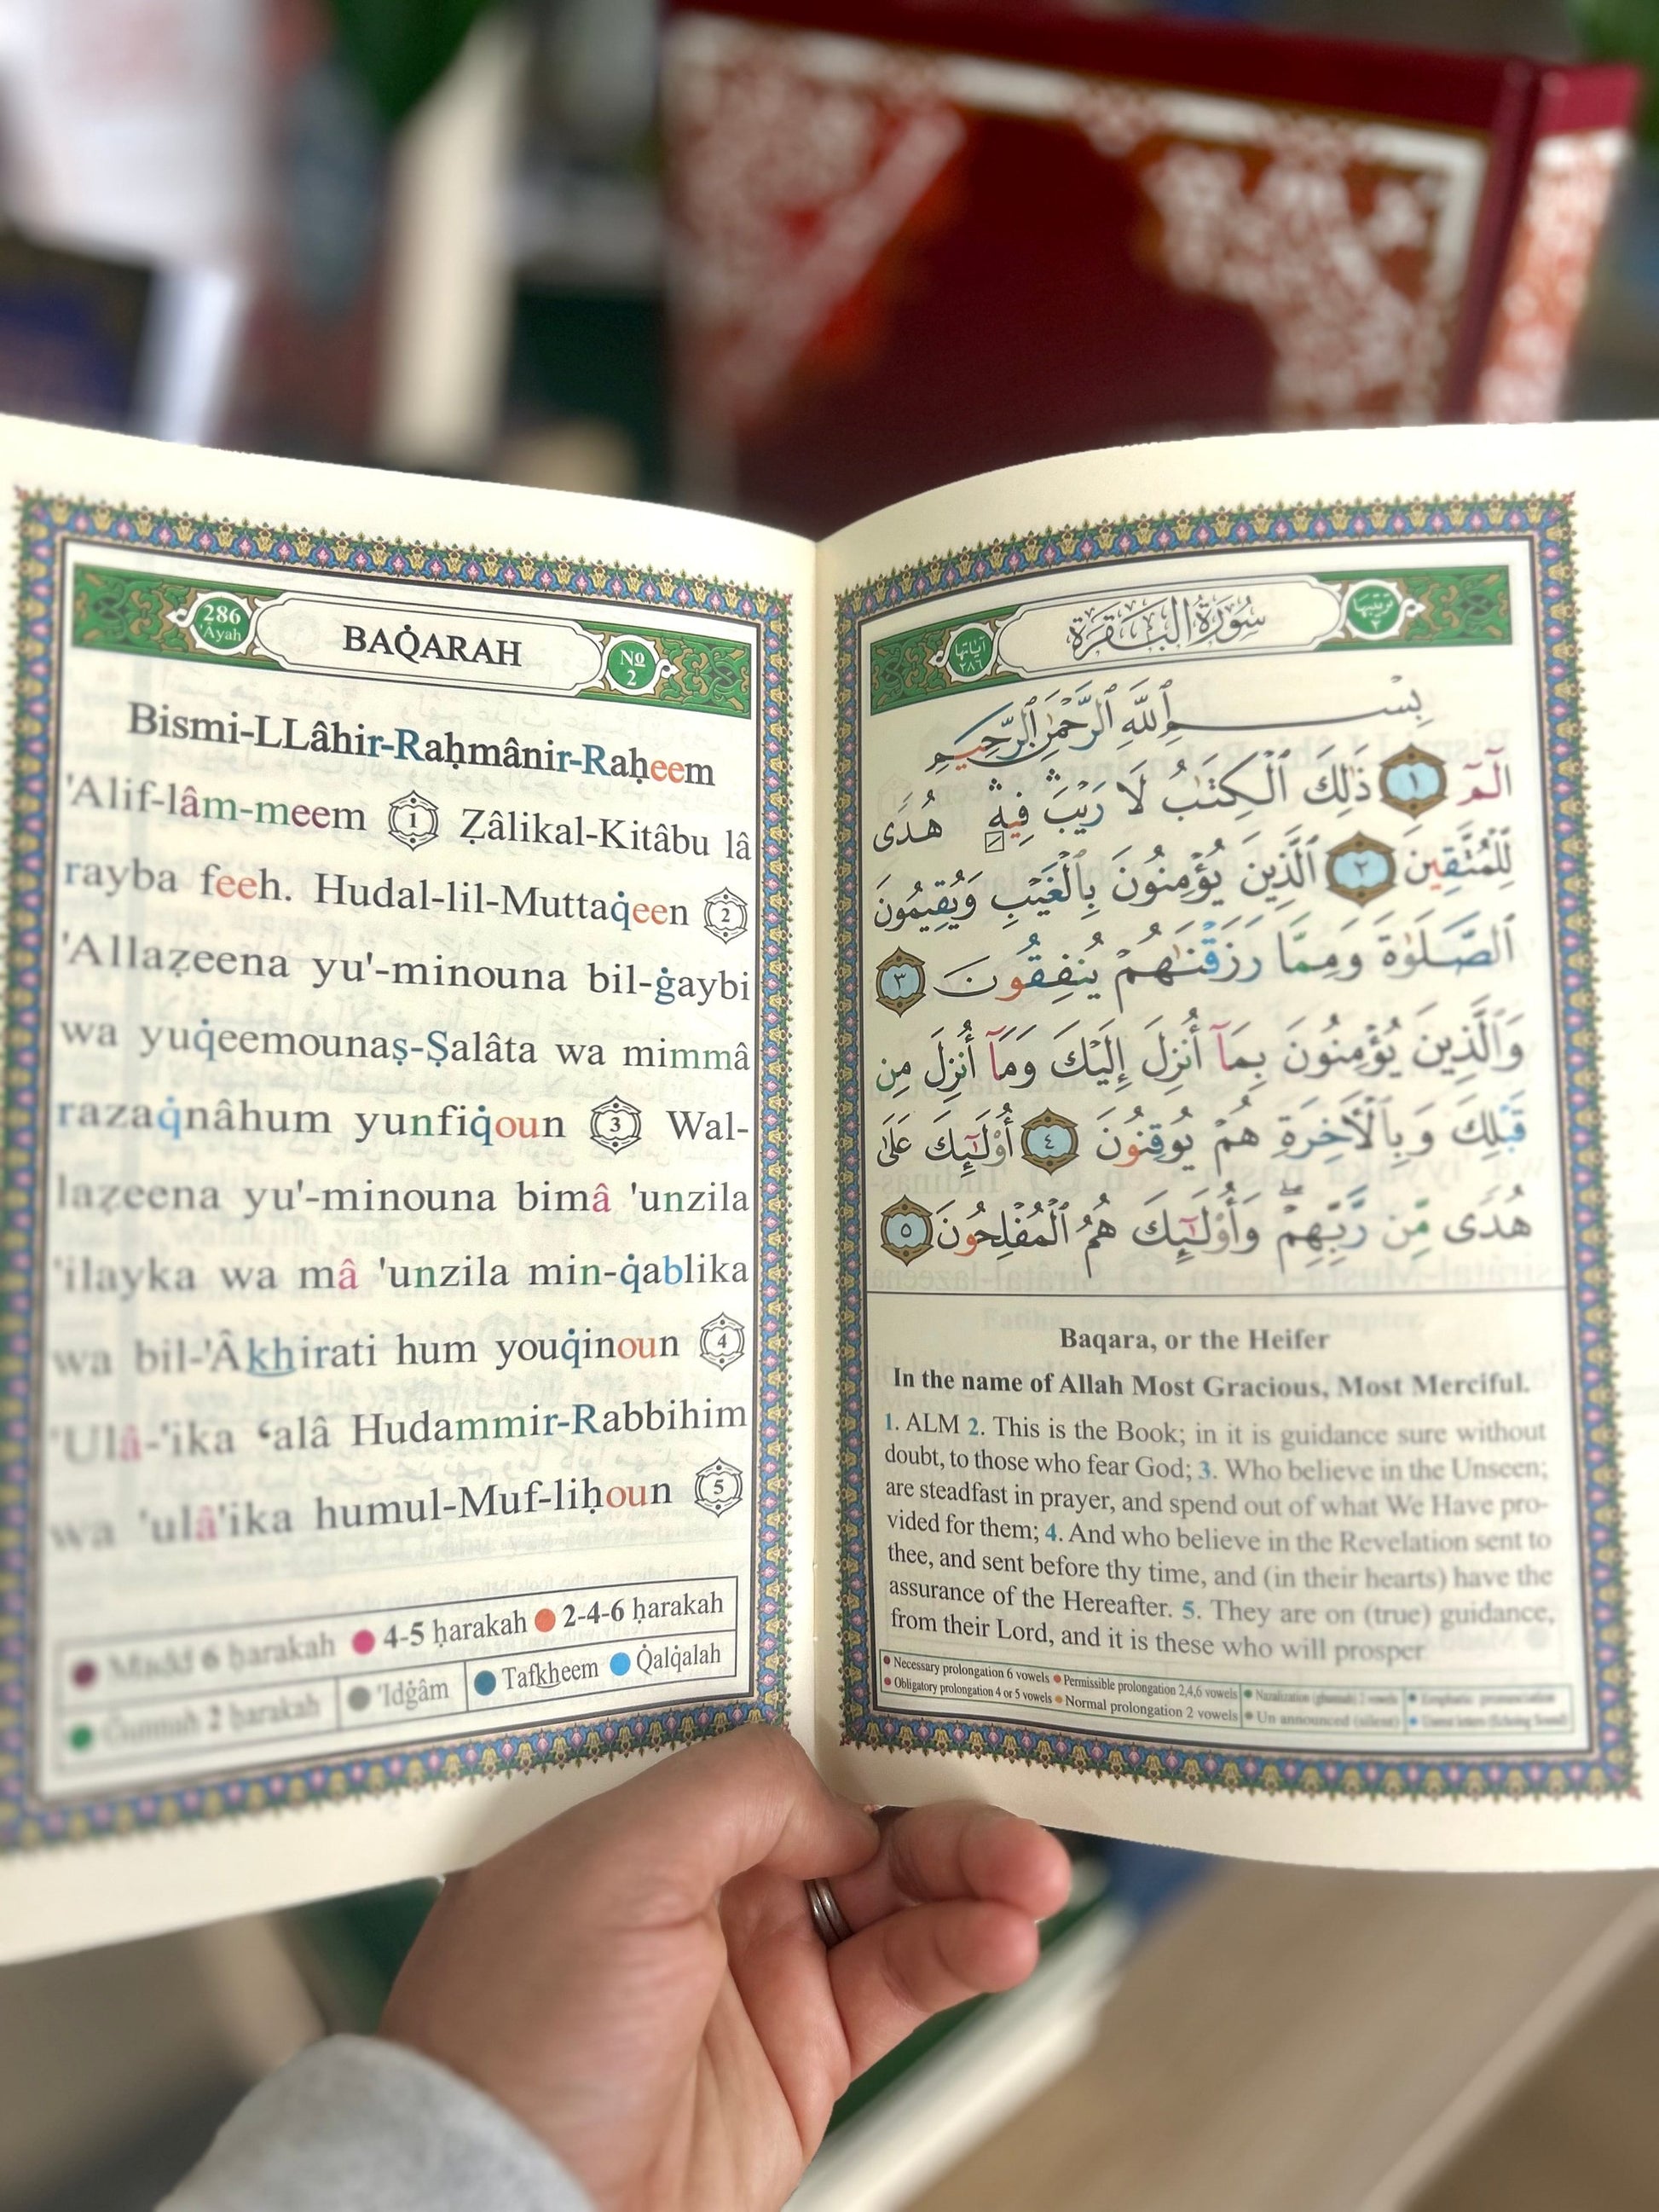 286
'Âyah
BAQ̇ARAH
№
2
Bismi-LLâhir-Raḥmânir-Raḥeem
'Alif-lâm-meem 1 Z̤âlikal-Kitâbu lâ
rayba feeh. Hudal-lil-Muttaq̇een 2
'Allaz̤eena yu'-minouna bil-ġaybi
wa yuq̇eemounaṣ-Ṣalâta wa mimmâ
razaq̇nâhum yunfiq̇oun 3 Wal-
laz̤eena yu'-minouna bimâ 'unzila
'ilayka wa mâ 'unzila min-q̇ablika
wa bil-'Âkhirati hum youq̇inoun 4
'Ulâ-'ika ʻalâ Hudammir-Rabbihim
wa 'ulâ'ika humul-Muf-liḥoun 5
Madd 6 ḥarakah 4-5 ḥarakah 2-4-6 ḥarakah
Ġunnah 2 ḥarakah 'Idġâm Tafkheem Q̇alq̇alah
سُورَةُ البَقَرَةِ
ترتيبها
٢
آياتها
٢٨٦
بِسْمِ ٱللَّهِ ٱلرَّحْمَٰنِ ٱلرَّحِيمِ
الٓمٓ ١ ذَٰلِكَ ٱلْكِتَٰبُ لَا رَيْبَ ۛ فِيهِ ۛ هُدًى
لِّلْمُتَّقِينَ ٢ ٱلَّذِينَ يُؤْمِنُونَ بِٱلْغَيْبِ وَيُقِيمُونَ
ٱلصَّلَوٰةَ وَمِمَّا رَزَقْنَٰهُمْ يُنفِقُونَ ٣
وَٱلَّذِينَ يُؤْمِنُونَ بِمَآ أُنزِلَ إِلَيْكَ وَمَآ أُنزِلَ مِن
قَبْلِكَ وَبِٱلْأَخِرَةِ هُمْ يُوقِنُونَ ٤ أُو۟لَٰٓئِكَ عَلَىٰ
هُدًى مِّن رَّبِّهِمْ ۖ وَأُو۟لَٰٓئِكَ هُمُ ٱلْمُفْلِحُونَ ٥
Baqara, or the Heifer
In the name of Allah Most Gracious, Most Merciful.
1. ALM 2. This is the Book; in it is guidance sure without
doubt, to those who fear God; 3. Who believe in the Unseen;
are steadfast in prayer, and spend out of what We Have pro-
vided for them; 4. And who believe in the Revelation sent to
thee, and sent before thy time, and (in their hearts) have the
assurance of the Hereafter. 5. They are on (true) guidance,
from their Lord, and it is these who will prosper
Necessary prolongation 6 vowels Permissible prolongation 2,4,6 vowels Nazalization (ghunnah) 2 vowels
Obligatory prolongation 4 or 5 vowels Normal prolongation 2 vowels Un announced (silent)